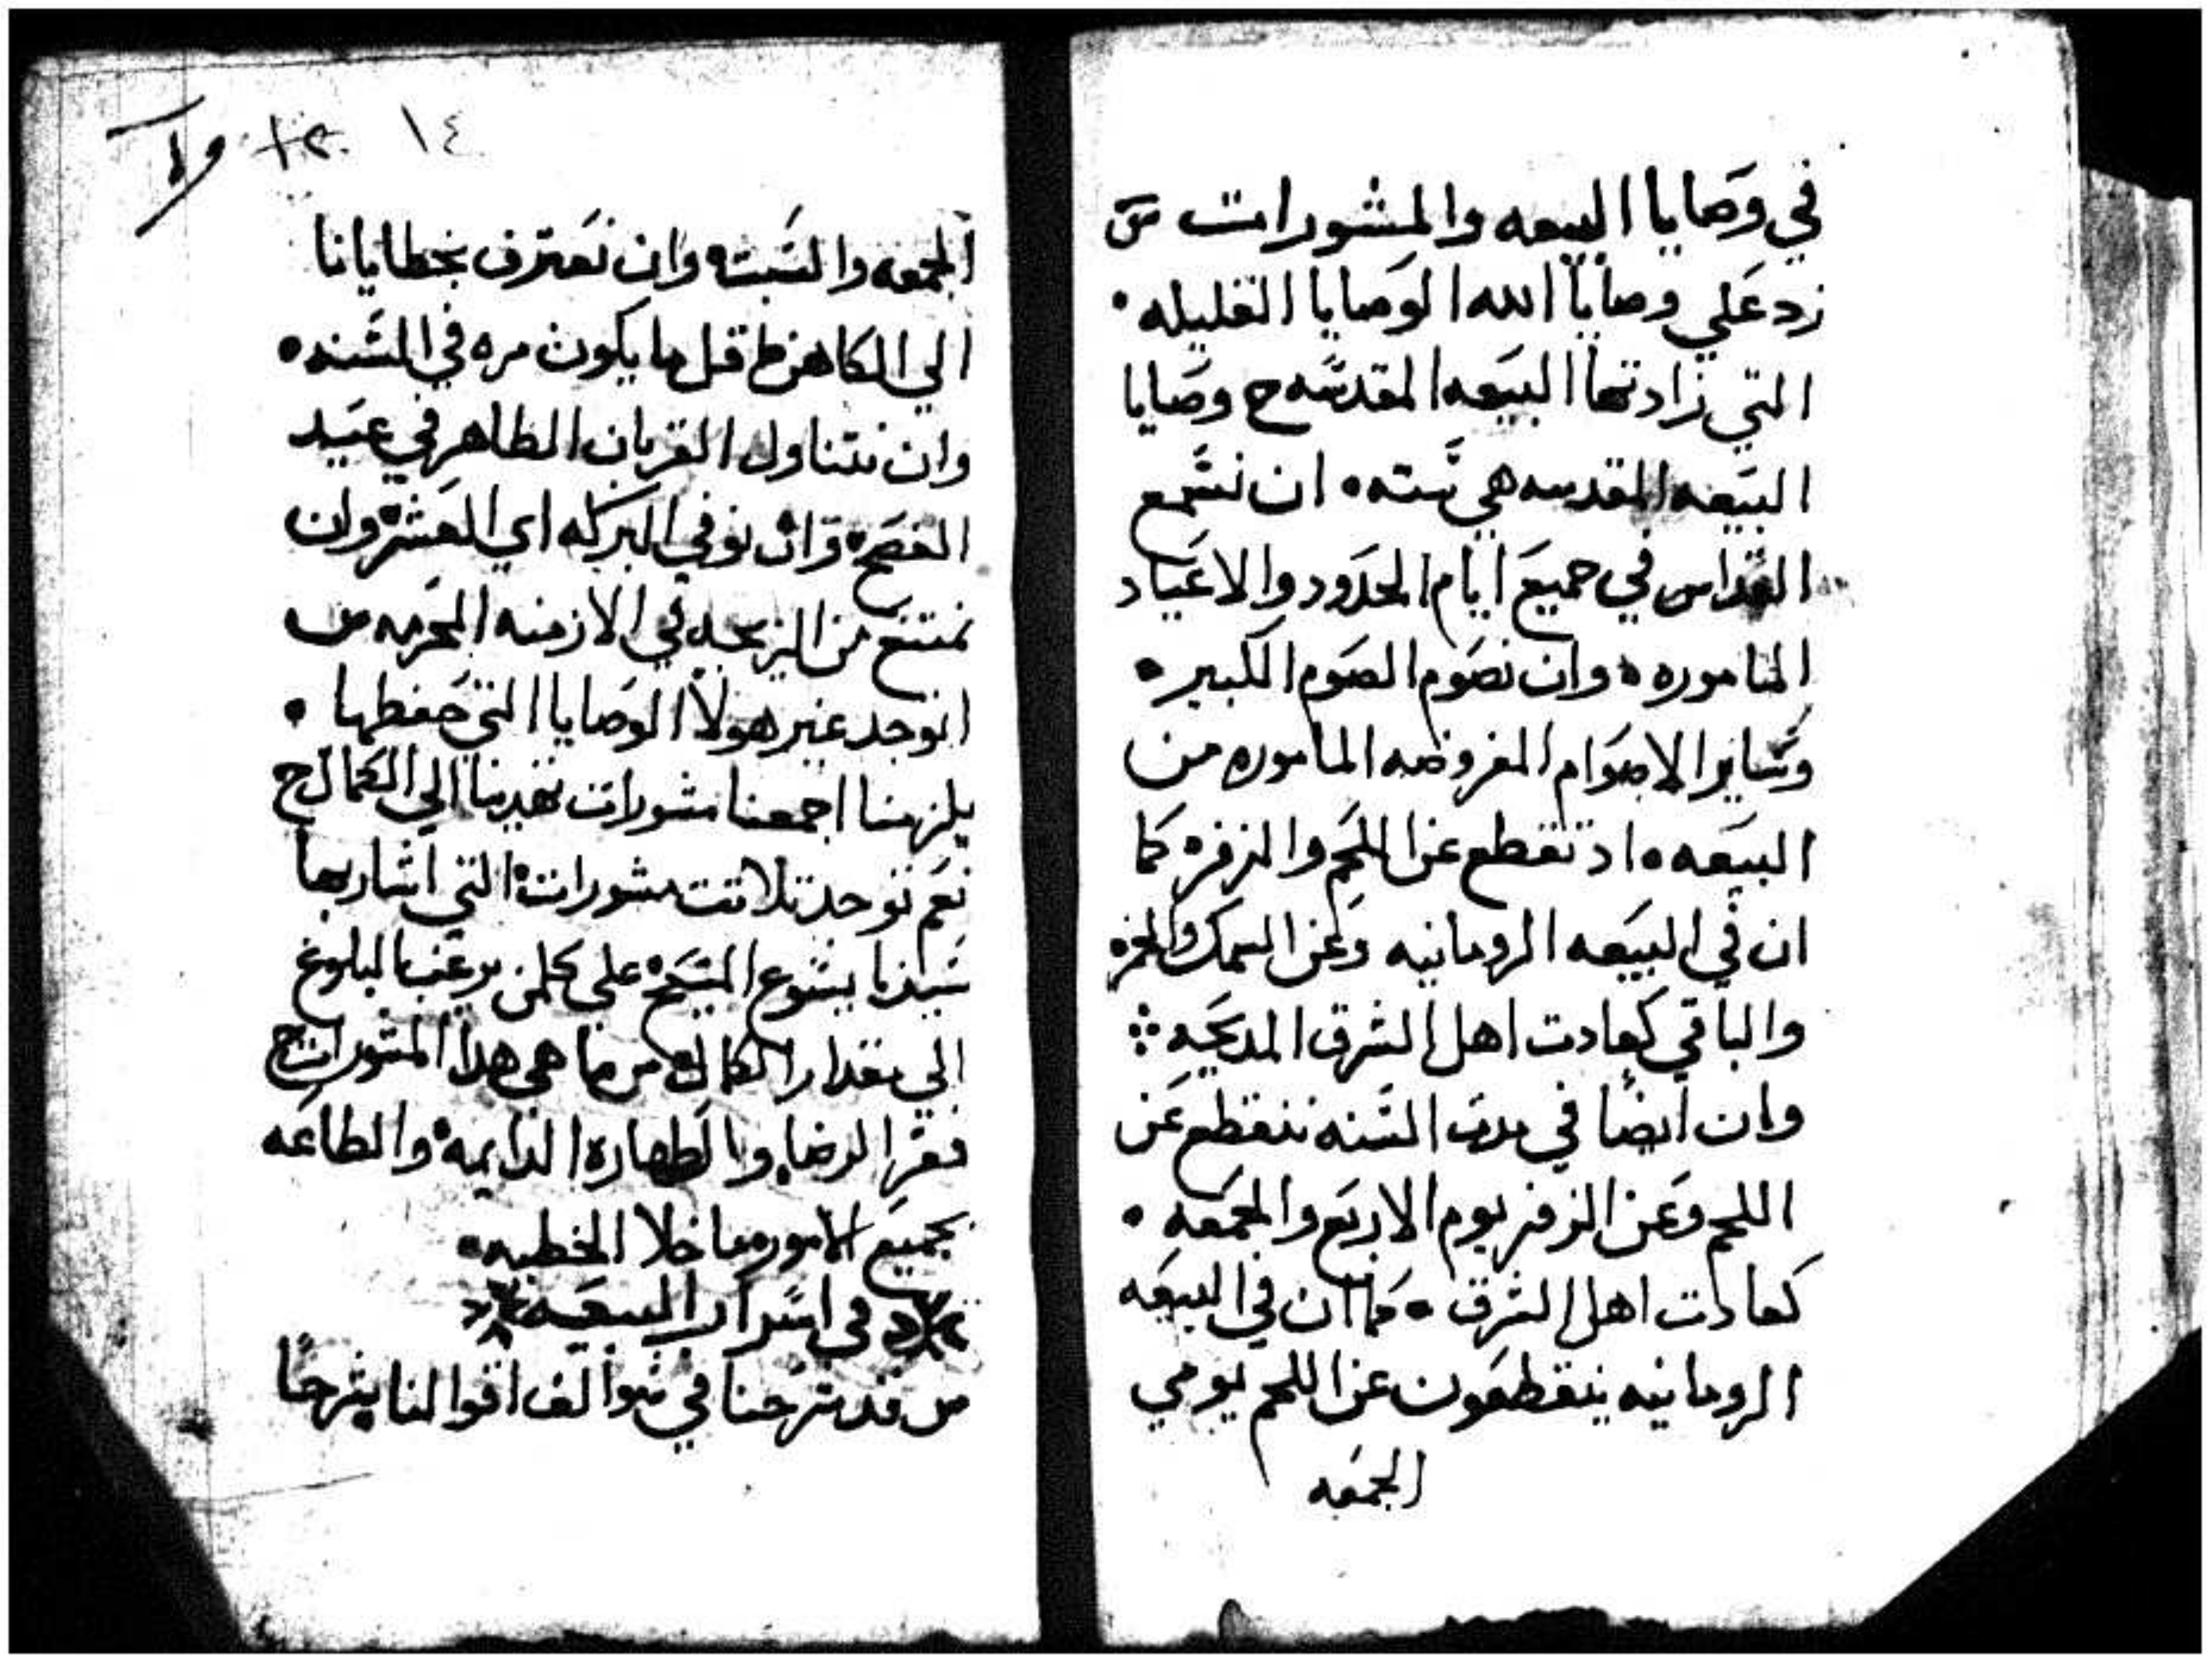 في وصايا البيعه والمشورات س
زد علي وصايا الله الوصايا القليله
التي زادتها البيعه المقدسه ج وصايا
البيعه المقدسه هي سته ان نسمع
القداس في جميع ايام الحدود والاعياد
الماموره وان نصوم الصوم الكبير
وساير الاصوام المفروضه الماموره من
البيعه اد تقطع عن اللحم والزفره كما
ان في البيعه الرومانيه وعن السمك والخمره
والباقي كعادت اهل الشرق المديحيه
وان ايضا في مدت السنه ننقطع عن
اللحم وعن الزفر يوم الاربع والجمعه
كعادت اهل الشرق كما ان في البيعه
الرومانيه ينقطعون عن اللحم يومي
الجمعه
١٤
الجمعه والسبت وان نعترف بخطايانا
الي الكاهن قل ما يكون مره في السنه
وان نتناول القربان الطاهر في عيد
الفصح وان نوفي البركه اي العشر وان
نمتنع من الزيجه في الازمنه المحرمه س
انوجد غير هولا الوصايا التي حفظها
يلزمنا اجمعنا مشورات تهدينا الي الكمال ج
نعم توجد تلاتت مشورات التي اشار بها
سيدنا يشوع المسيح على كلمن يرغب البلوغ
الي مقدار الكمال س ما هي هدا المشورات ج
فقر الرضا والطهاره الدايمه والطاعه
بجميع الامور ما خلا الخطيه
في اسرار البيعه
س قد شرحنا في سوالف اقوالنا شرحا